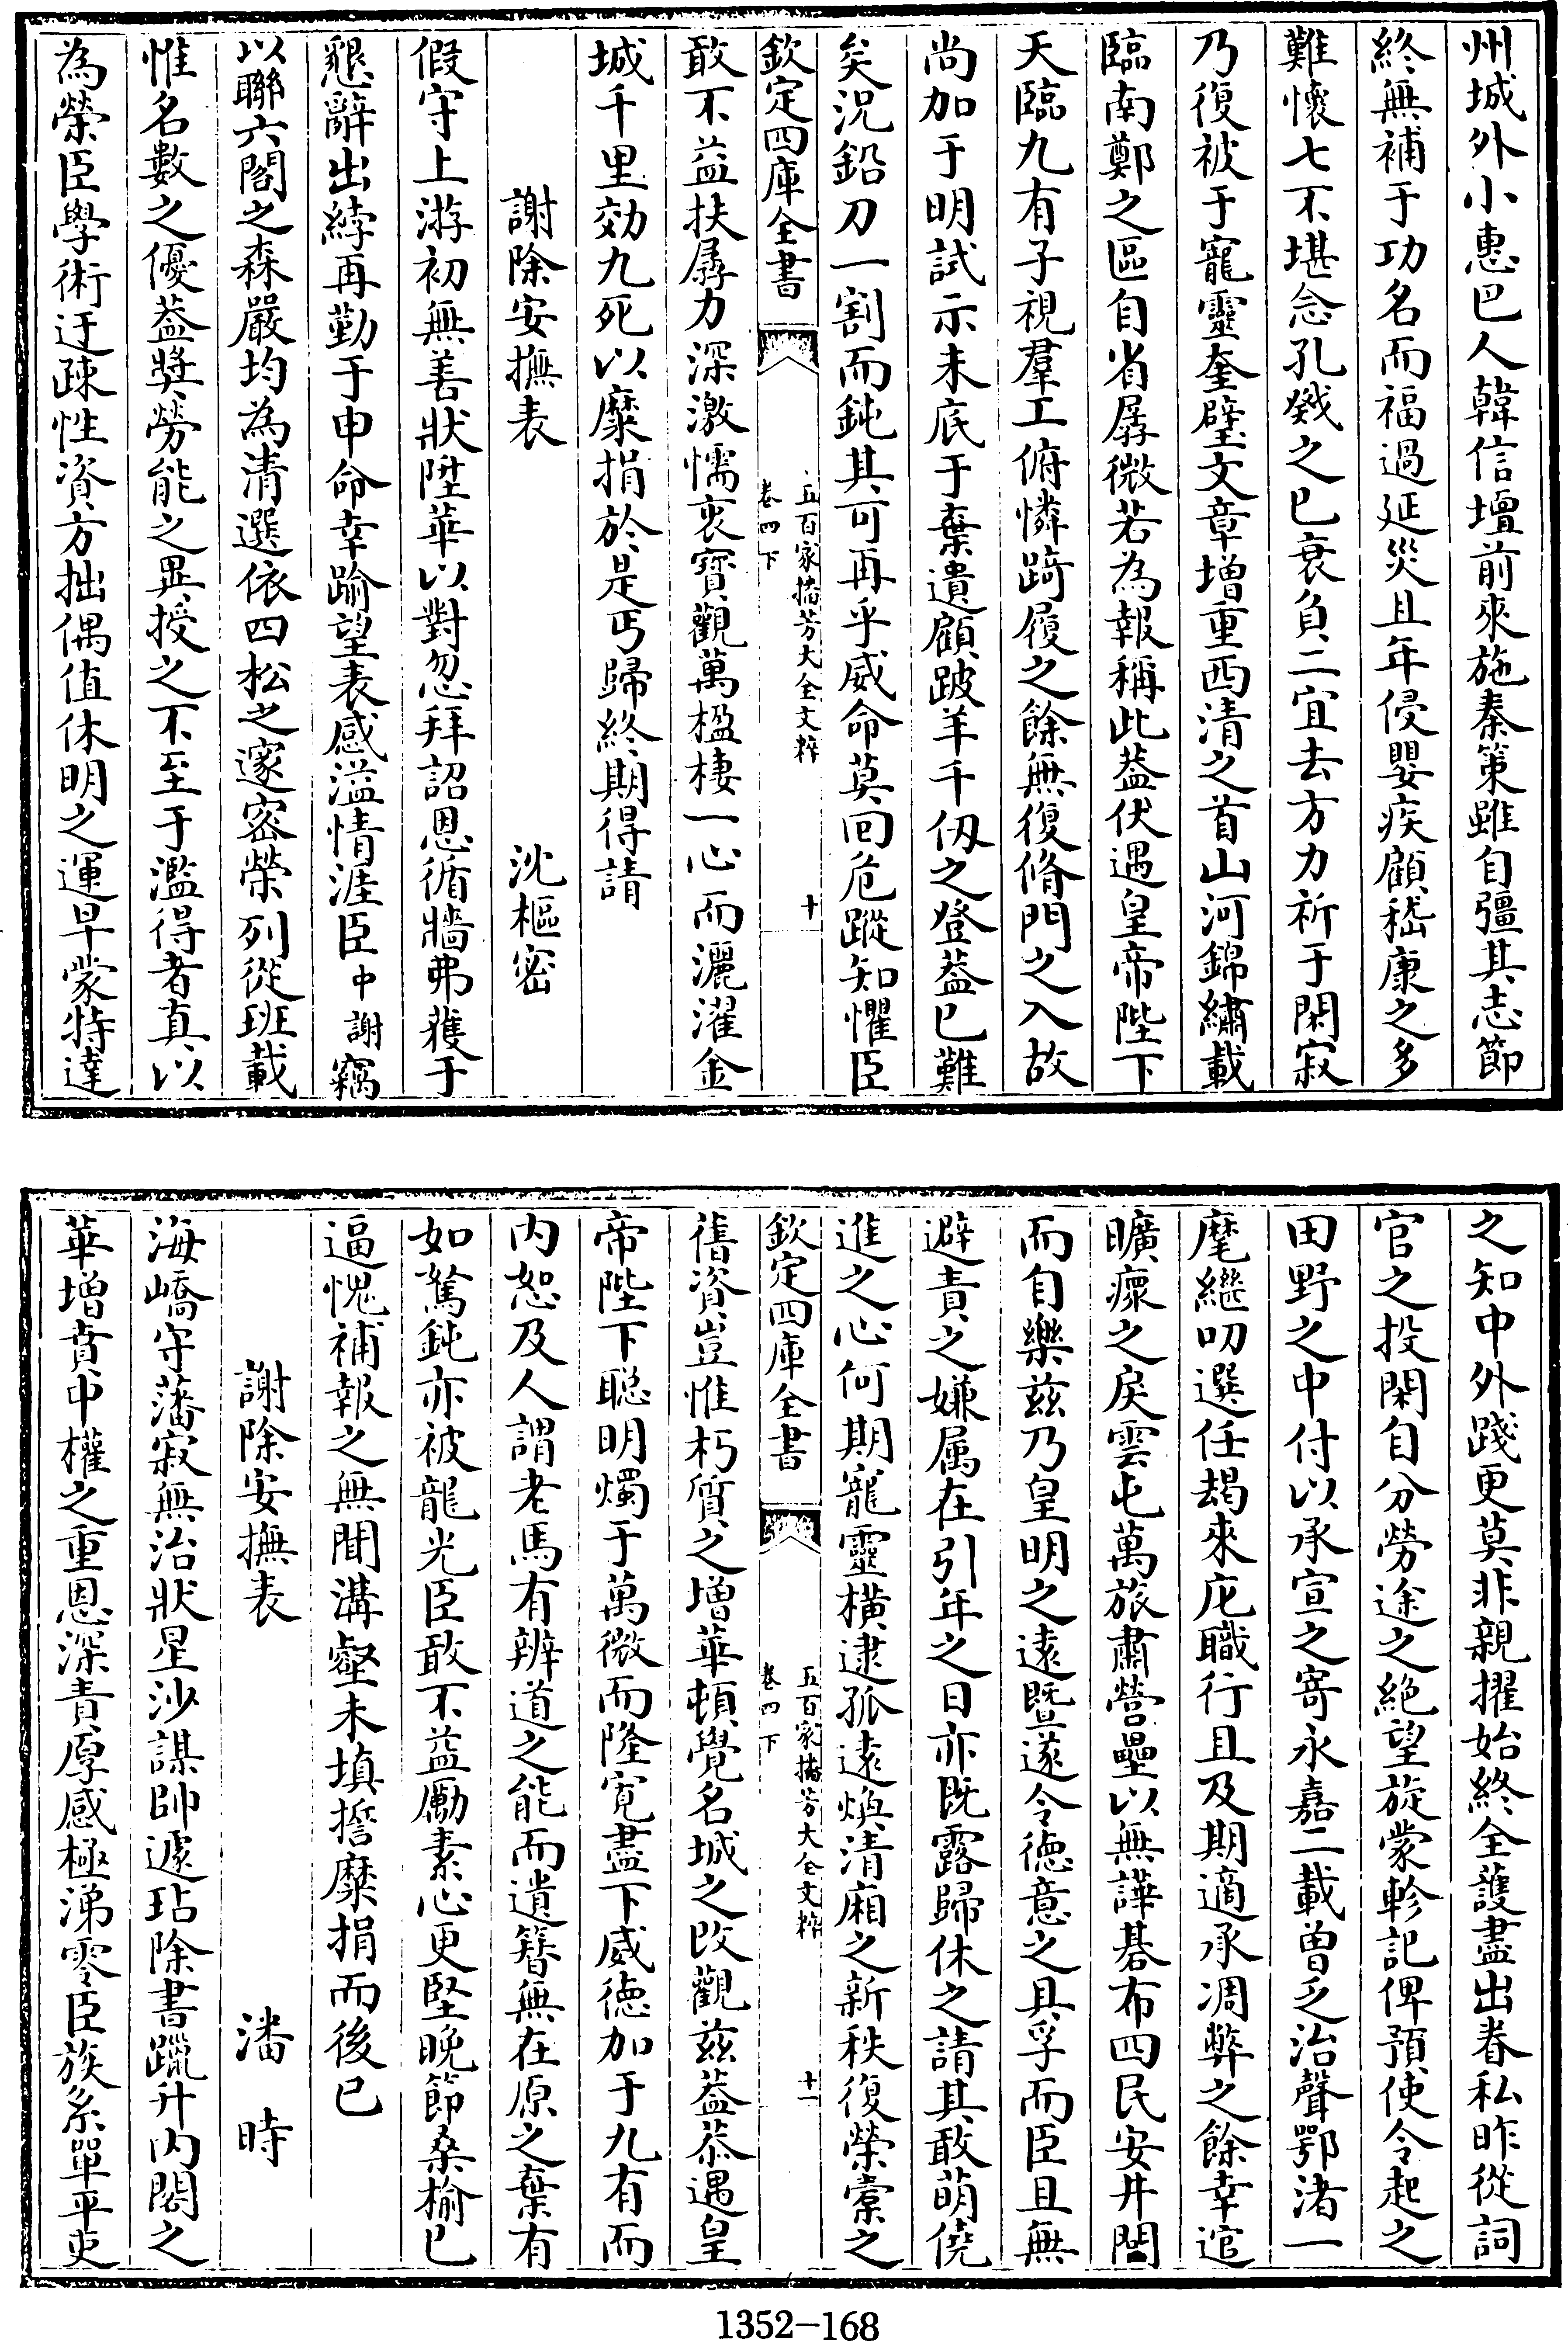 州城外小惠巴人韓信壇前來施秦策雖自彊其志節
終無補于功名而福過延災且年侵嬰疾顧嵇康之多
難懷七不堪念孔戣之已衰負二宜去方力祈于閑寂
乃復被于寵靈奎璧文章增重西清之首山河錦繡載
臨南鄭之區自省孱微若為報稱此葢伏遇皇帝陛下
天臨九有子視羣工俯憐踦履之餘無復脩門之入故
尚加于明試示未底于棄遺顧跛羊千仭之登葢已難
矣況鉛刀一割而鈍其可再乎威命莫回危蹤知懼臣
欽定四庫全書
五百家播芳大全文粹
卷四下
十
敢不益扶孱力深激懦衷寳觀萬楹棲一心而灑濯金
城千里效九死以糜捐於是丐歸終期得請
謝除安撫表 沈樞密
假守上游初無善狀陞華以對忽拜詔恩循牆弗獲于
懇辭出綍再勤于申命幸踰望表感溢情涯臣中謝竊
以聯六閣之森嚴均為清選依四松之邃密榮列從班載
惟名數之優葢奬勞能之異授之不至于濫得者真以
為榮臣學術迂疎性資方拙偶值休明之運早蒙特達
之知中外踐更莫非親擢始終全護盡出眷私昨從詞
官之投閑自分勞途之絶望旋蒙軫記俾預使令起之
田野之中付以承宣之寄永嘉二載曾乏治聲鄂渚一
麾繼叨選任朅來庀職行且及期適承凋弊之餘幸逭
曠瘝之戾雲屯萬旅肅營壘以無譁碁布四民安井閭
而自樂兹乃皇明之遠暨遂令德意之具孚而臣且無
避責之嫌属在引年之日亦既露歸休之請其敢萌僥
進之心何期寵靈橫逮孤遠煥清廂之新秩復榮橐之
欽定四庫全書
五百家播芳大全文粹
卷四下
十一
舊資豈惟朽質之增華頓覺名城之改觀兹葢恭遇皇
帝陛下聪明燭于萬微而隆寛盡下威德加于九有而
内恕及人謂老馬有辨道之能而遺簪無在原之棄有
如駑鈍亦被龍光臣敢不益勵素心更堅晚節桑榆已
逼愧補報之無聞溝壑未填誓糜捐而後已
謝除安撫表 潘時
海嶠守藩寂無治狀星沙謀帥遽玷除書躐升内閣之
華增賁中權之重恩深責厚感極涕零臣族系單平吏
1352-168